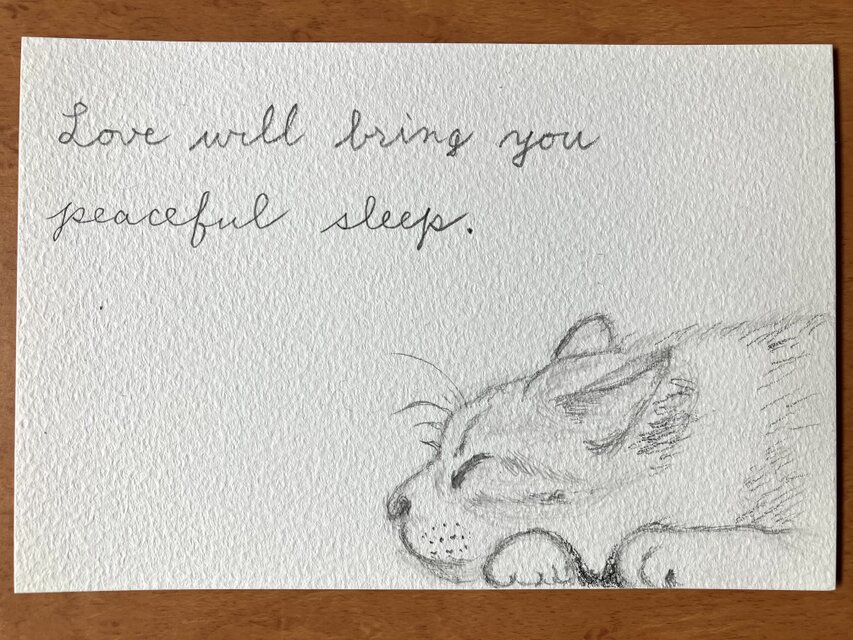 Love will bring you
peaceful sleep.